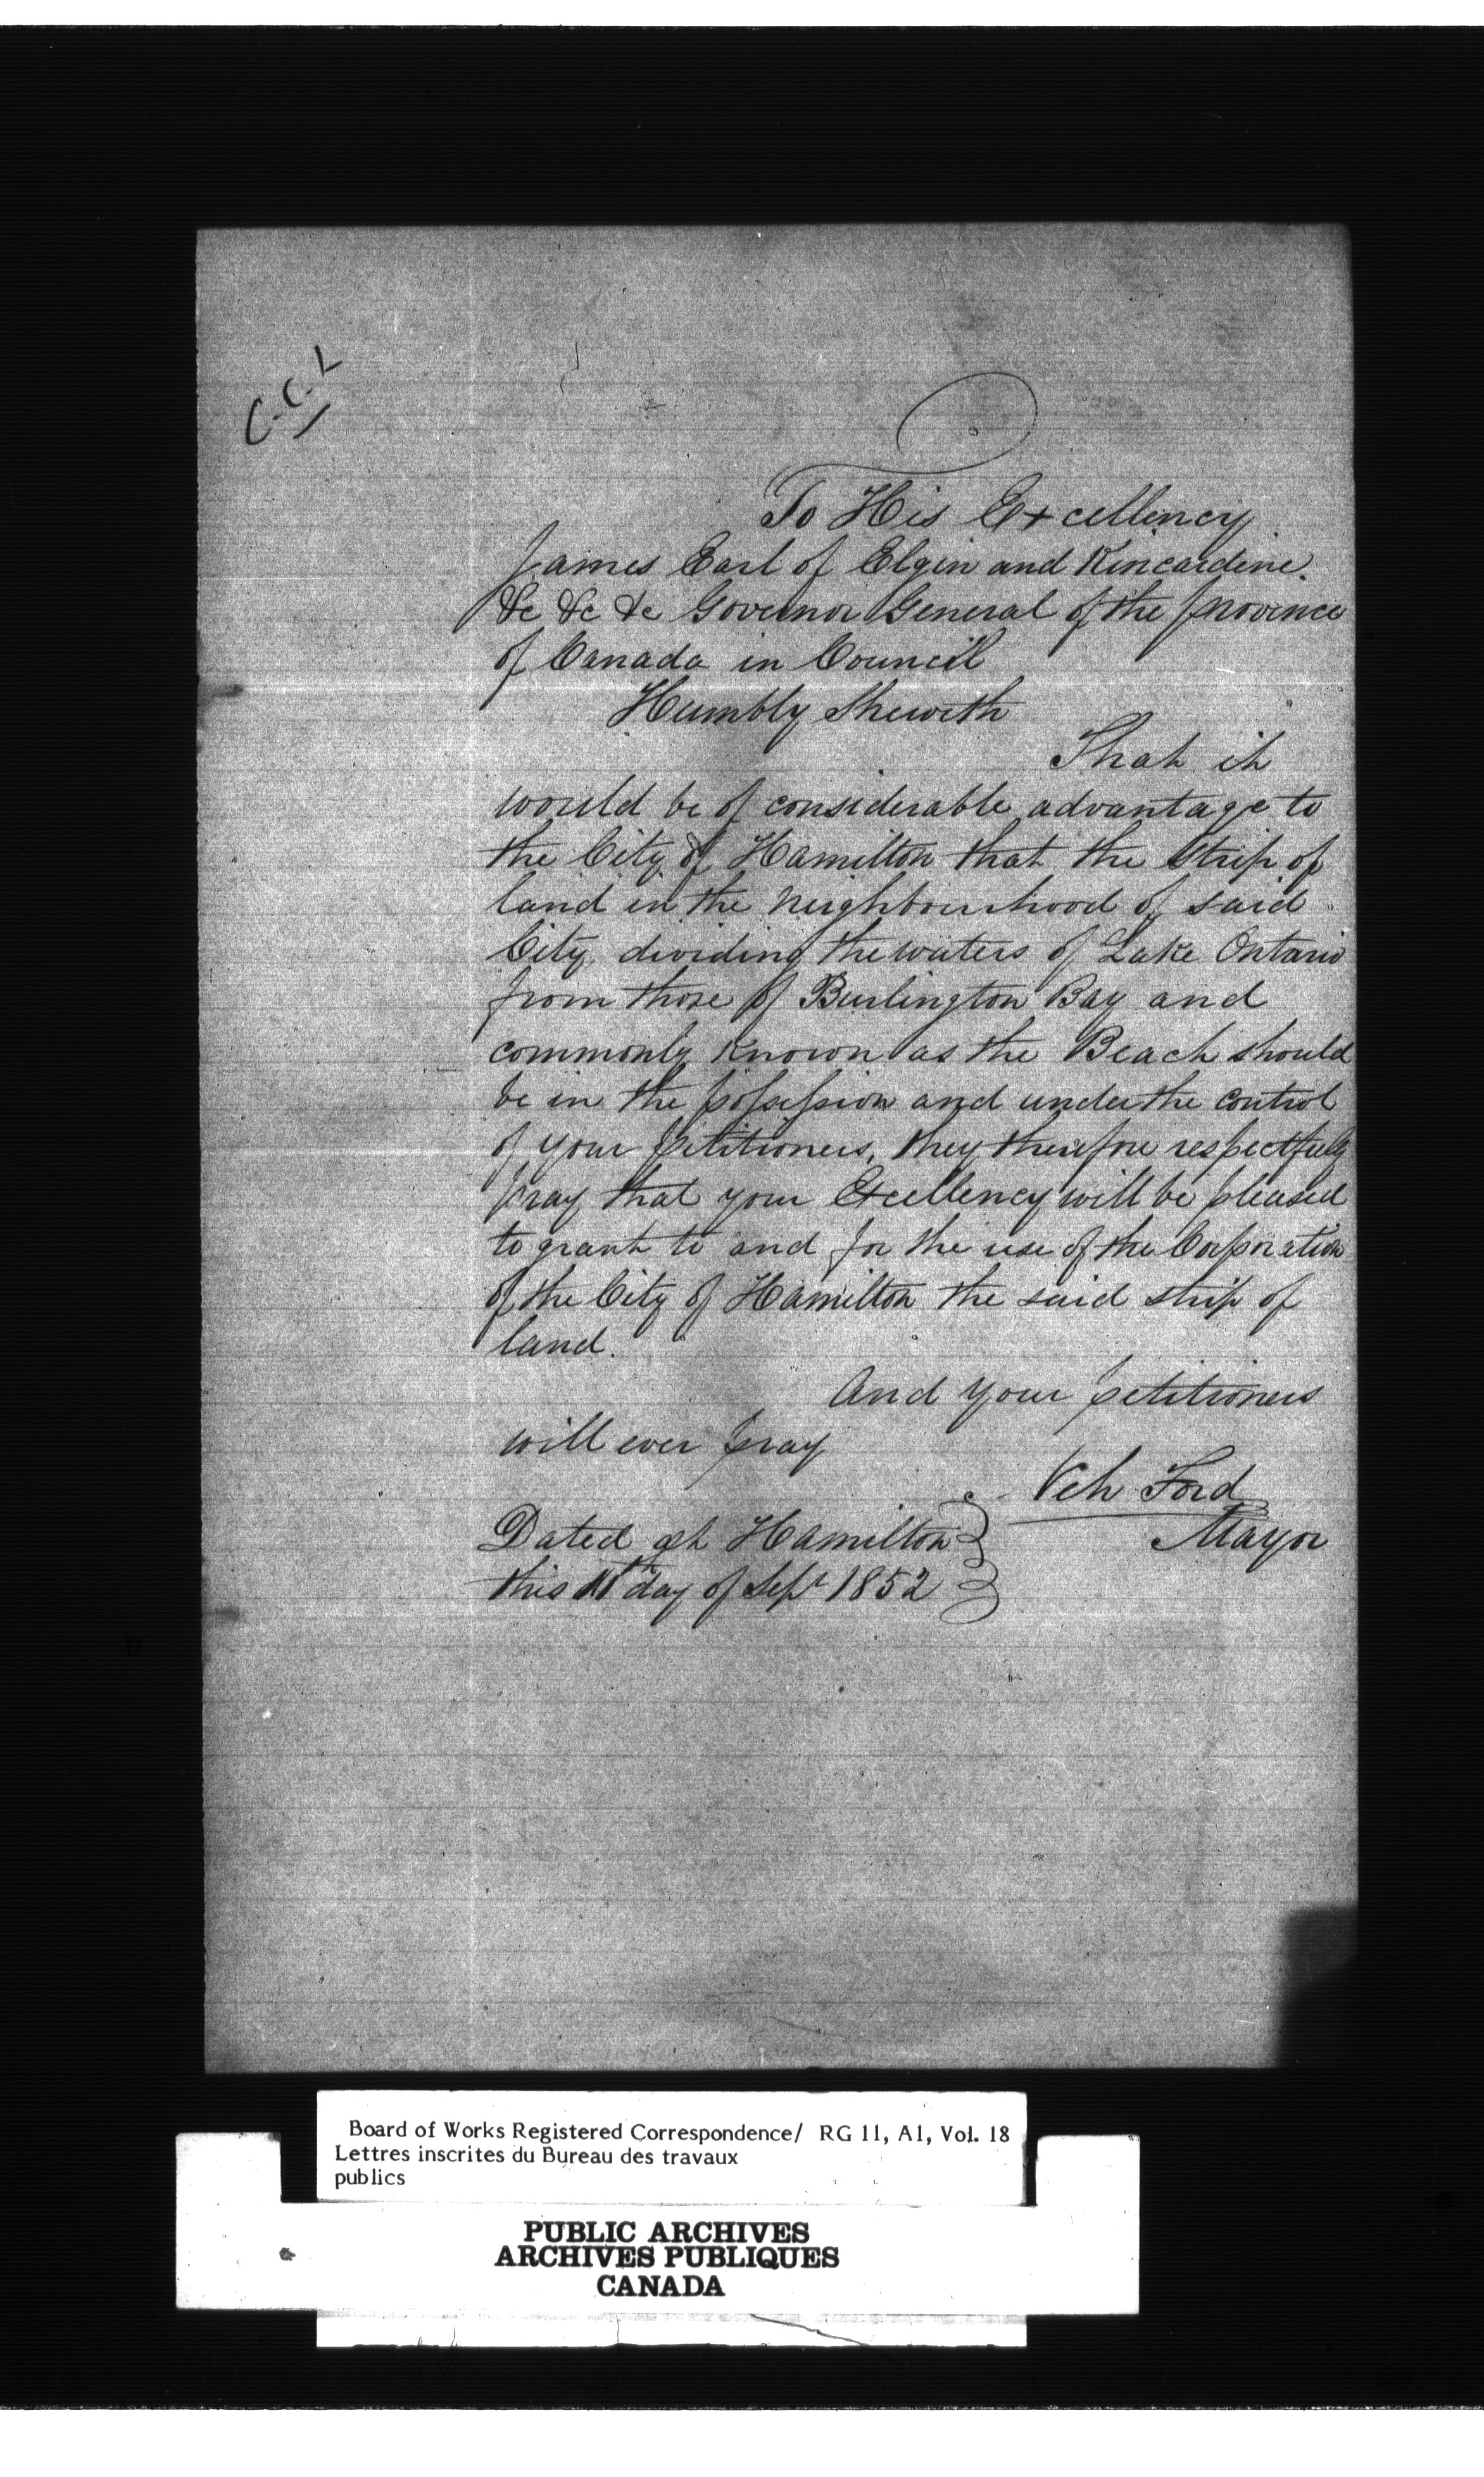 C.C.L
To His Excellency
James Earl of Elgin and Kincardine
&c &c &c Governor General of the province
of Canada in Council
Humbly Sheweth
That it
would be of considerable advantage to
the City of Hamilton that the Strip of
land in the neighbourhood of said
City dividing the waters of Lake Ontario
from those of Burlington Bay and
commonly known as the Beach should
be in the possession and under the control
of your petitioners, they therefore respectfully
pray that your Excellency will be pleased
to grant to and for the use of the Corporation
of the City of Hamilton the said strip of
land.
And your petitioners
will ever pray
Neh Ford
Mayor
Dated at Hamilton
this day of Sept 1852
Board of Works Registered Correspondence/ RG 11, A1, Vol. 18
Lettres inscrites du Bureau des travaux
publics
PUBLIC ARCHIVES
ARCHIVES PUBLIQUES
CANADA